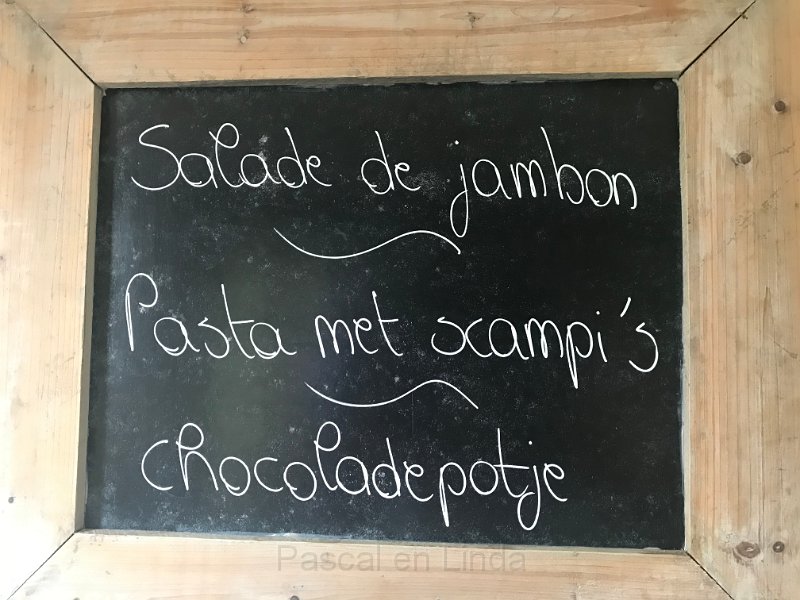 Salade de jambon
Pasta met scampi's
chocoladepotje
Pascal en Linda